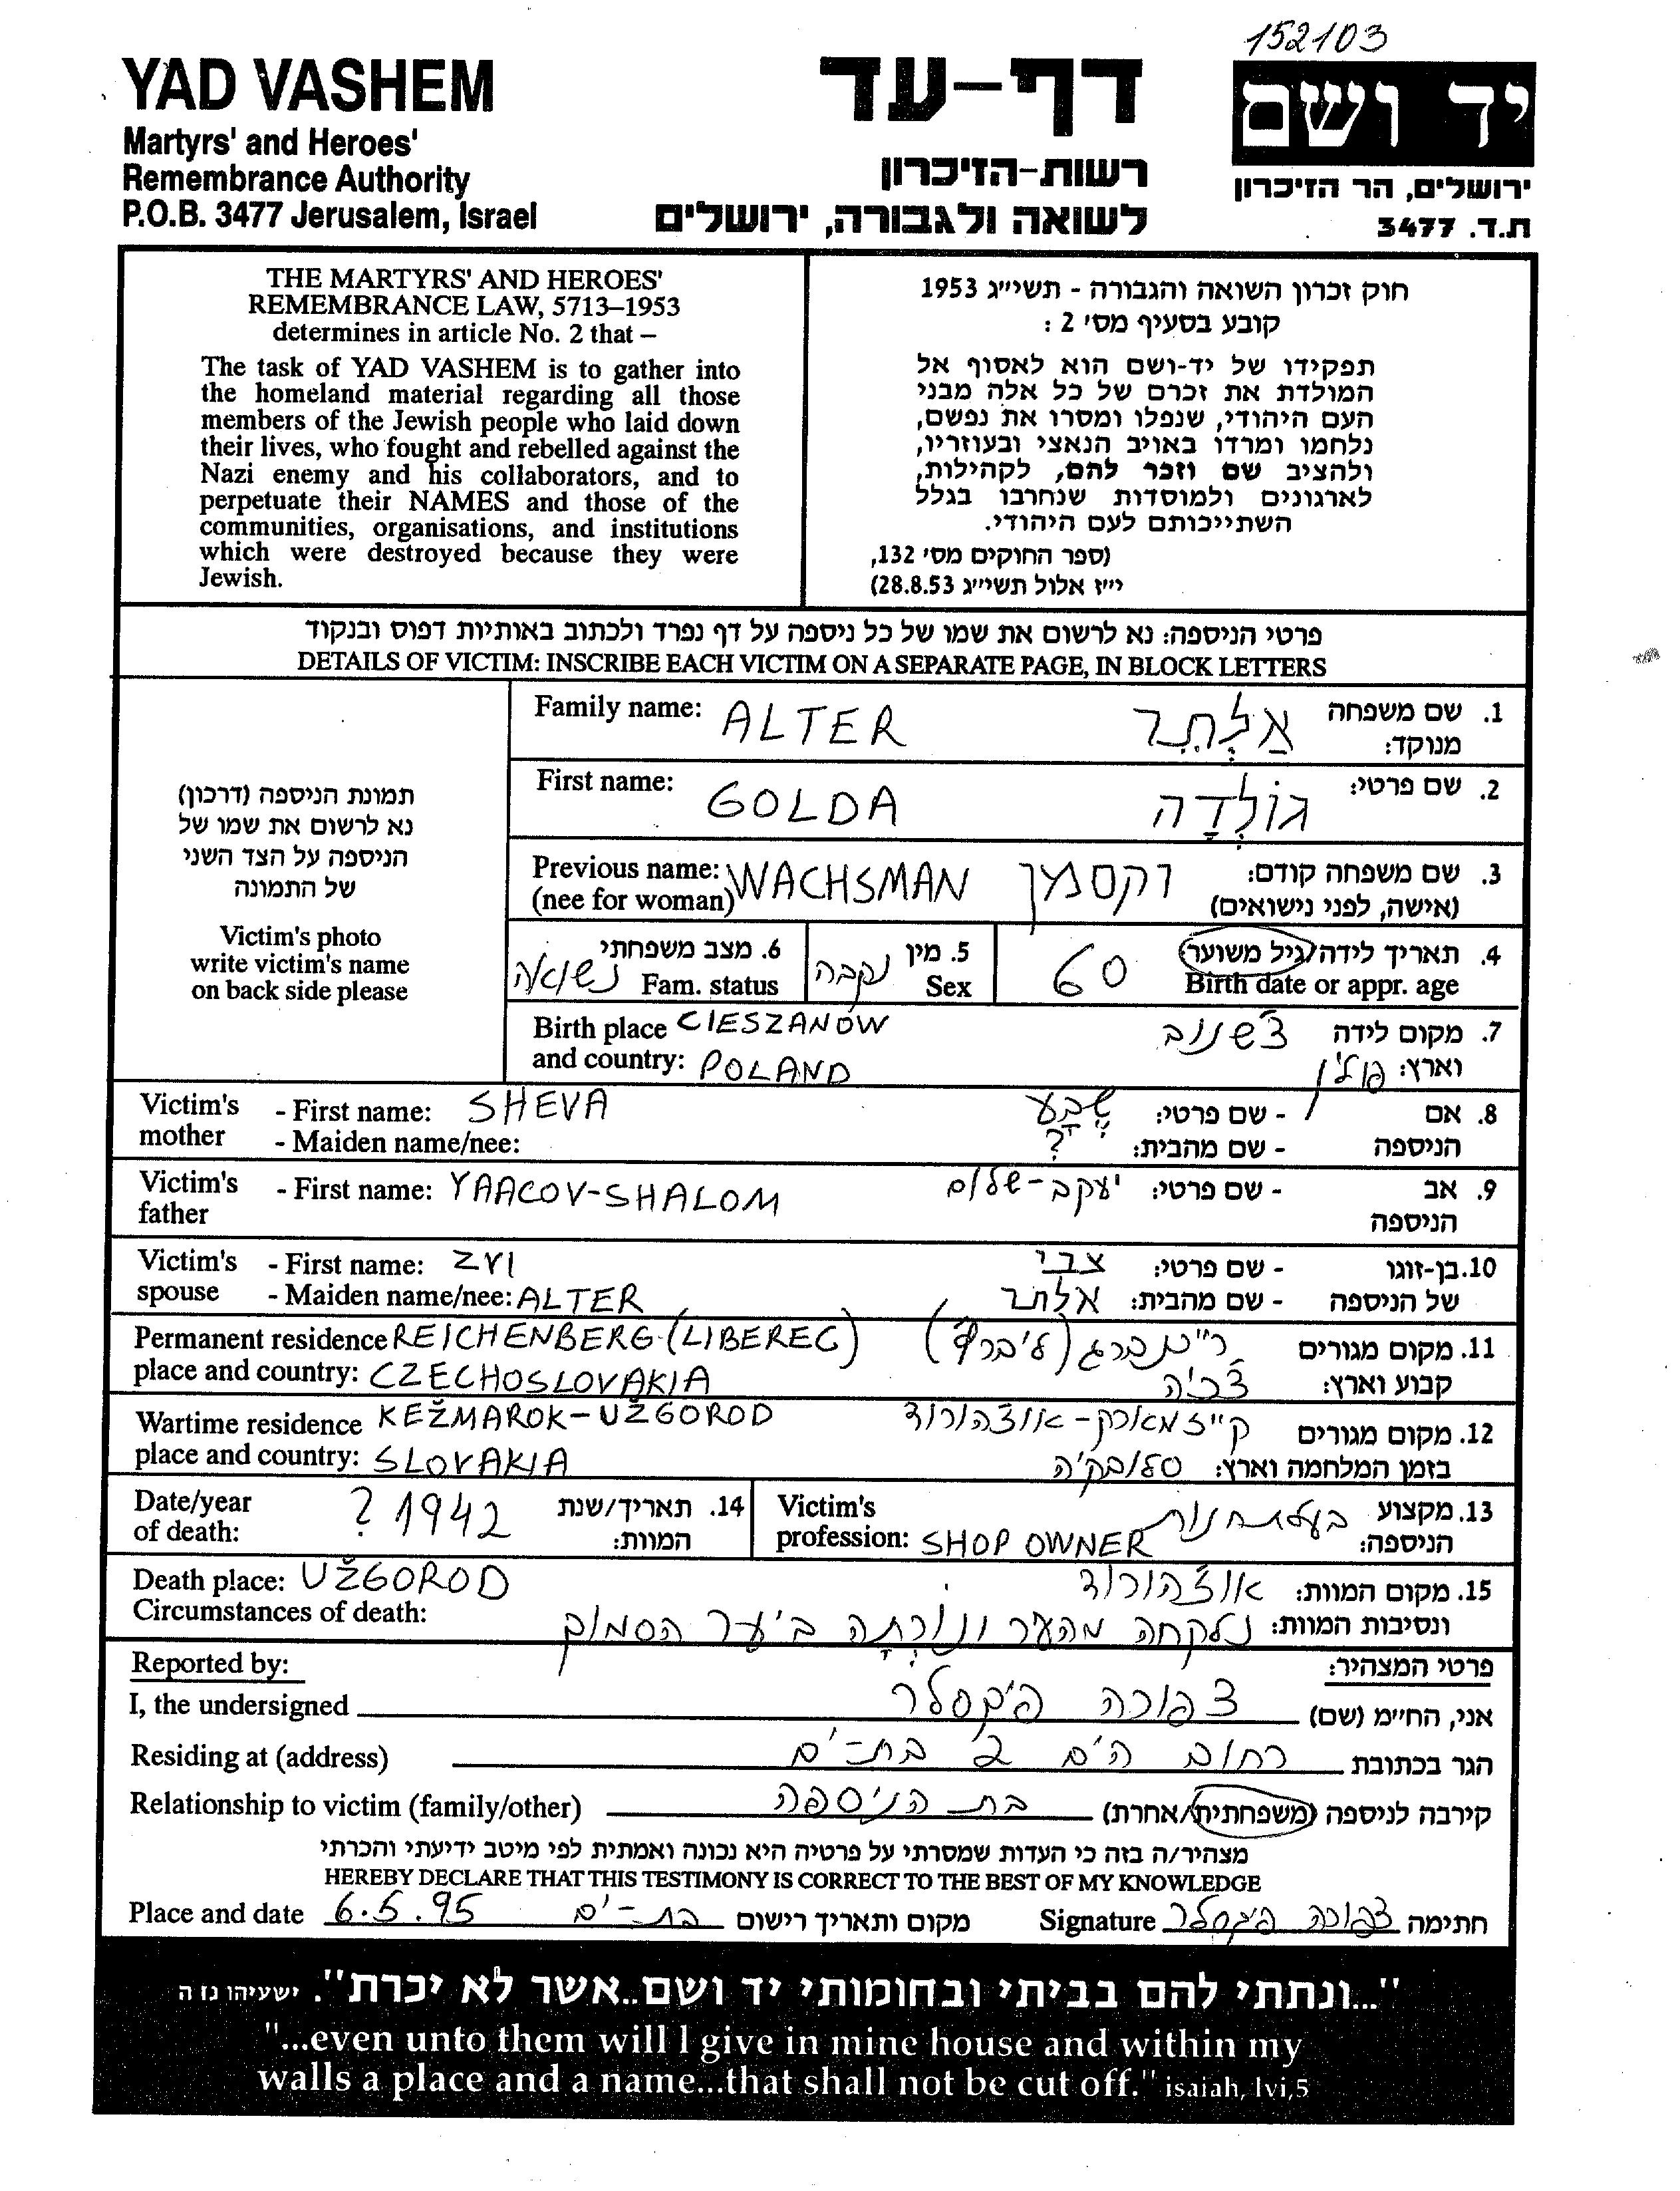 152103
YAD VASHEM
Martyrs' and Heroes'
Remembrance Authority
P.O.B. 3477 Jerusalem, Israel
דף-עד
רשות-הזיכרון
לשואה ולגבורה, ירושלים
יד ושם
ירושלים, הר הזיכרון
ת.ד. 3477
THE MARTYRS' AND HEROES'
REMEMBRANCE LAW, 5713–1953
determines in article No. 2 that –
The task of YAD VASHEM is to gather into
the homeland material regarding all those
members of the Jewish people who laid down
their lives, who fought and rebelled against the
Nazi enemy and his collaborators, and to
perpetuate their NAMES and those of the
communities, organisations, and institutions
which were destroyed because they were
Jewish.
חוק זכרון השואה והגבורה - תשי״ג 1953
קובע בסעיף מס' 2 :
תפקידו של יד-ושם הוא לאסוף אל
המולדת את זכרם של כל אלה מבני
העם היהודי, שנפלו ומסרו את נפשם,
נלחמו ומרדו באויב הנאצי ובעוזריו,
ולהציב שם וזכר להם, לקהילות,
לארגונים ולמוסדות שנחרבו בגלל
השתייכותם לעם היהודי.
(ספר החוקים מס' 132,
י״ז אלול תשי״ג 28.8.53)
פרטי הניספה: נא לרשום את שמו של כל ניספה על דף נפרד ולכתוב באותיות דפוס ובנקוד
DETAILS OF VICTIM: INSCRIBE EACH VICTIM ON A SEPARATE PAGE, IN BLOCK LETTERS
תמונת הניספה (דרכון)
נא לרשום את שמו של
הניספה על הצד השני
של התמונה
Victim's photo
write victim's name
on back side please
Family name: ALTER אַלְתֵר 1. שם משפחה
מנוקד:
First name: GOLDA גוֹלְדָה 2. שם פרטי:
Previous name: WACHSMAN וקסמן 3. שם משפחה קודם:
(nee for woman) (אישה, לפני נישואים)
6. מצב משפחתי נשואה Fam. status
5. מין נקבה Sex
4. תאריך לידה/גיל משוער 60
Birth date or appr. age
Birth place CIESZANÓW צ'שנוב 7. מקום לידה
and country: POLAND פולין וארץ:
Victim's - First name: SHEVA שֶבַע - שם פרטי: 8. אם
mother - Maiden name/nee: ? - שם מהבית: הניספה
Victim's - First name: YAACOV-SHALOM יעקב-שלום - שם פרטי: 9. אב
father הניספה
Victim's - First name: ZVI צבי - שם פרטי: 10. בן-זוגו
spouse - Maiden name/nee: ALTER אלתר - שם מהבית: של הניספה
Permanent residence REICHENBERG (LIBEREC) 11. מקום מגורים
place and country: CZECHOSLOVAKIA צ'כיה קבוע וארץ:
Wartime residence KEŽMAROK-UŽGOROD קייזמארק-אוז'הורוד 12. מקום מגורים
place and country: SLOVAKIA סלובקיה בזמן המלחמה וארץ:
Date/year ? 1942 14. תאריך/שנת
of death: המוות:
Victim's בעלת חנות 13. מקצוע
profession: SHOP OWNER הניספה:
Death place: UŽGOROD אוז'הורוד 15. מקום המוות:
Circumstances of death: נלקחה מהעיר ונורְתָה ביער הסמוך ונסיבות המוות:
Reported by: פרטי המצהיר:
I, the undersigned צפורה פיקסלר אני, החי״מ (שם)
Residing at (address) רחוב הים 2 בת-ים הגר בכתובת
Relationship to victim (family/other) בת הניספה קירבה לניספה (משפחתית/אחרת)
מצהיר/ה בזה כי העדות שמסרתי על פרטיה היא נכונה ואמתית לפי מיטב ידיעתי והכרתי
HEREBY DECLARE THAT THIS TESTIMONY IS CORRECT TO THE BEST OF MY KNOWLEDGE
Place and date 6.5.95 בת-ים מקום ותאריך רישום Signature צפורה פיקסלר חתימה
"...ונתתי להם בביתי ובחומותי יד ושם..אשר לא יכרת". ישעיהו נז ה
"...even unto them will I give in mine house and within my
walls a place and a name...that shall not be cut off." isaiah, lvi,5